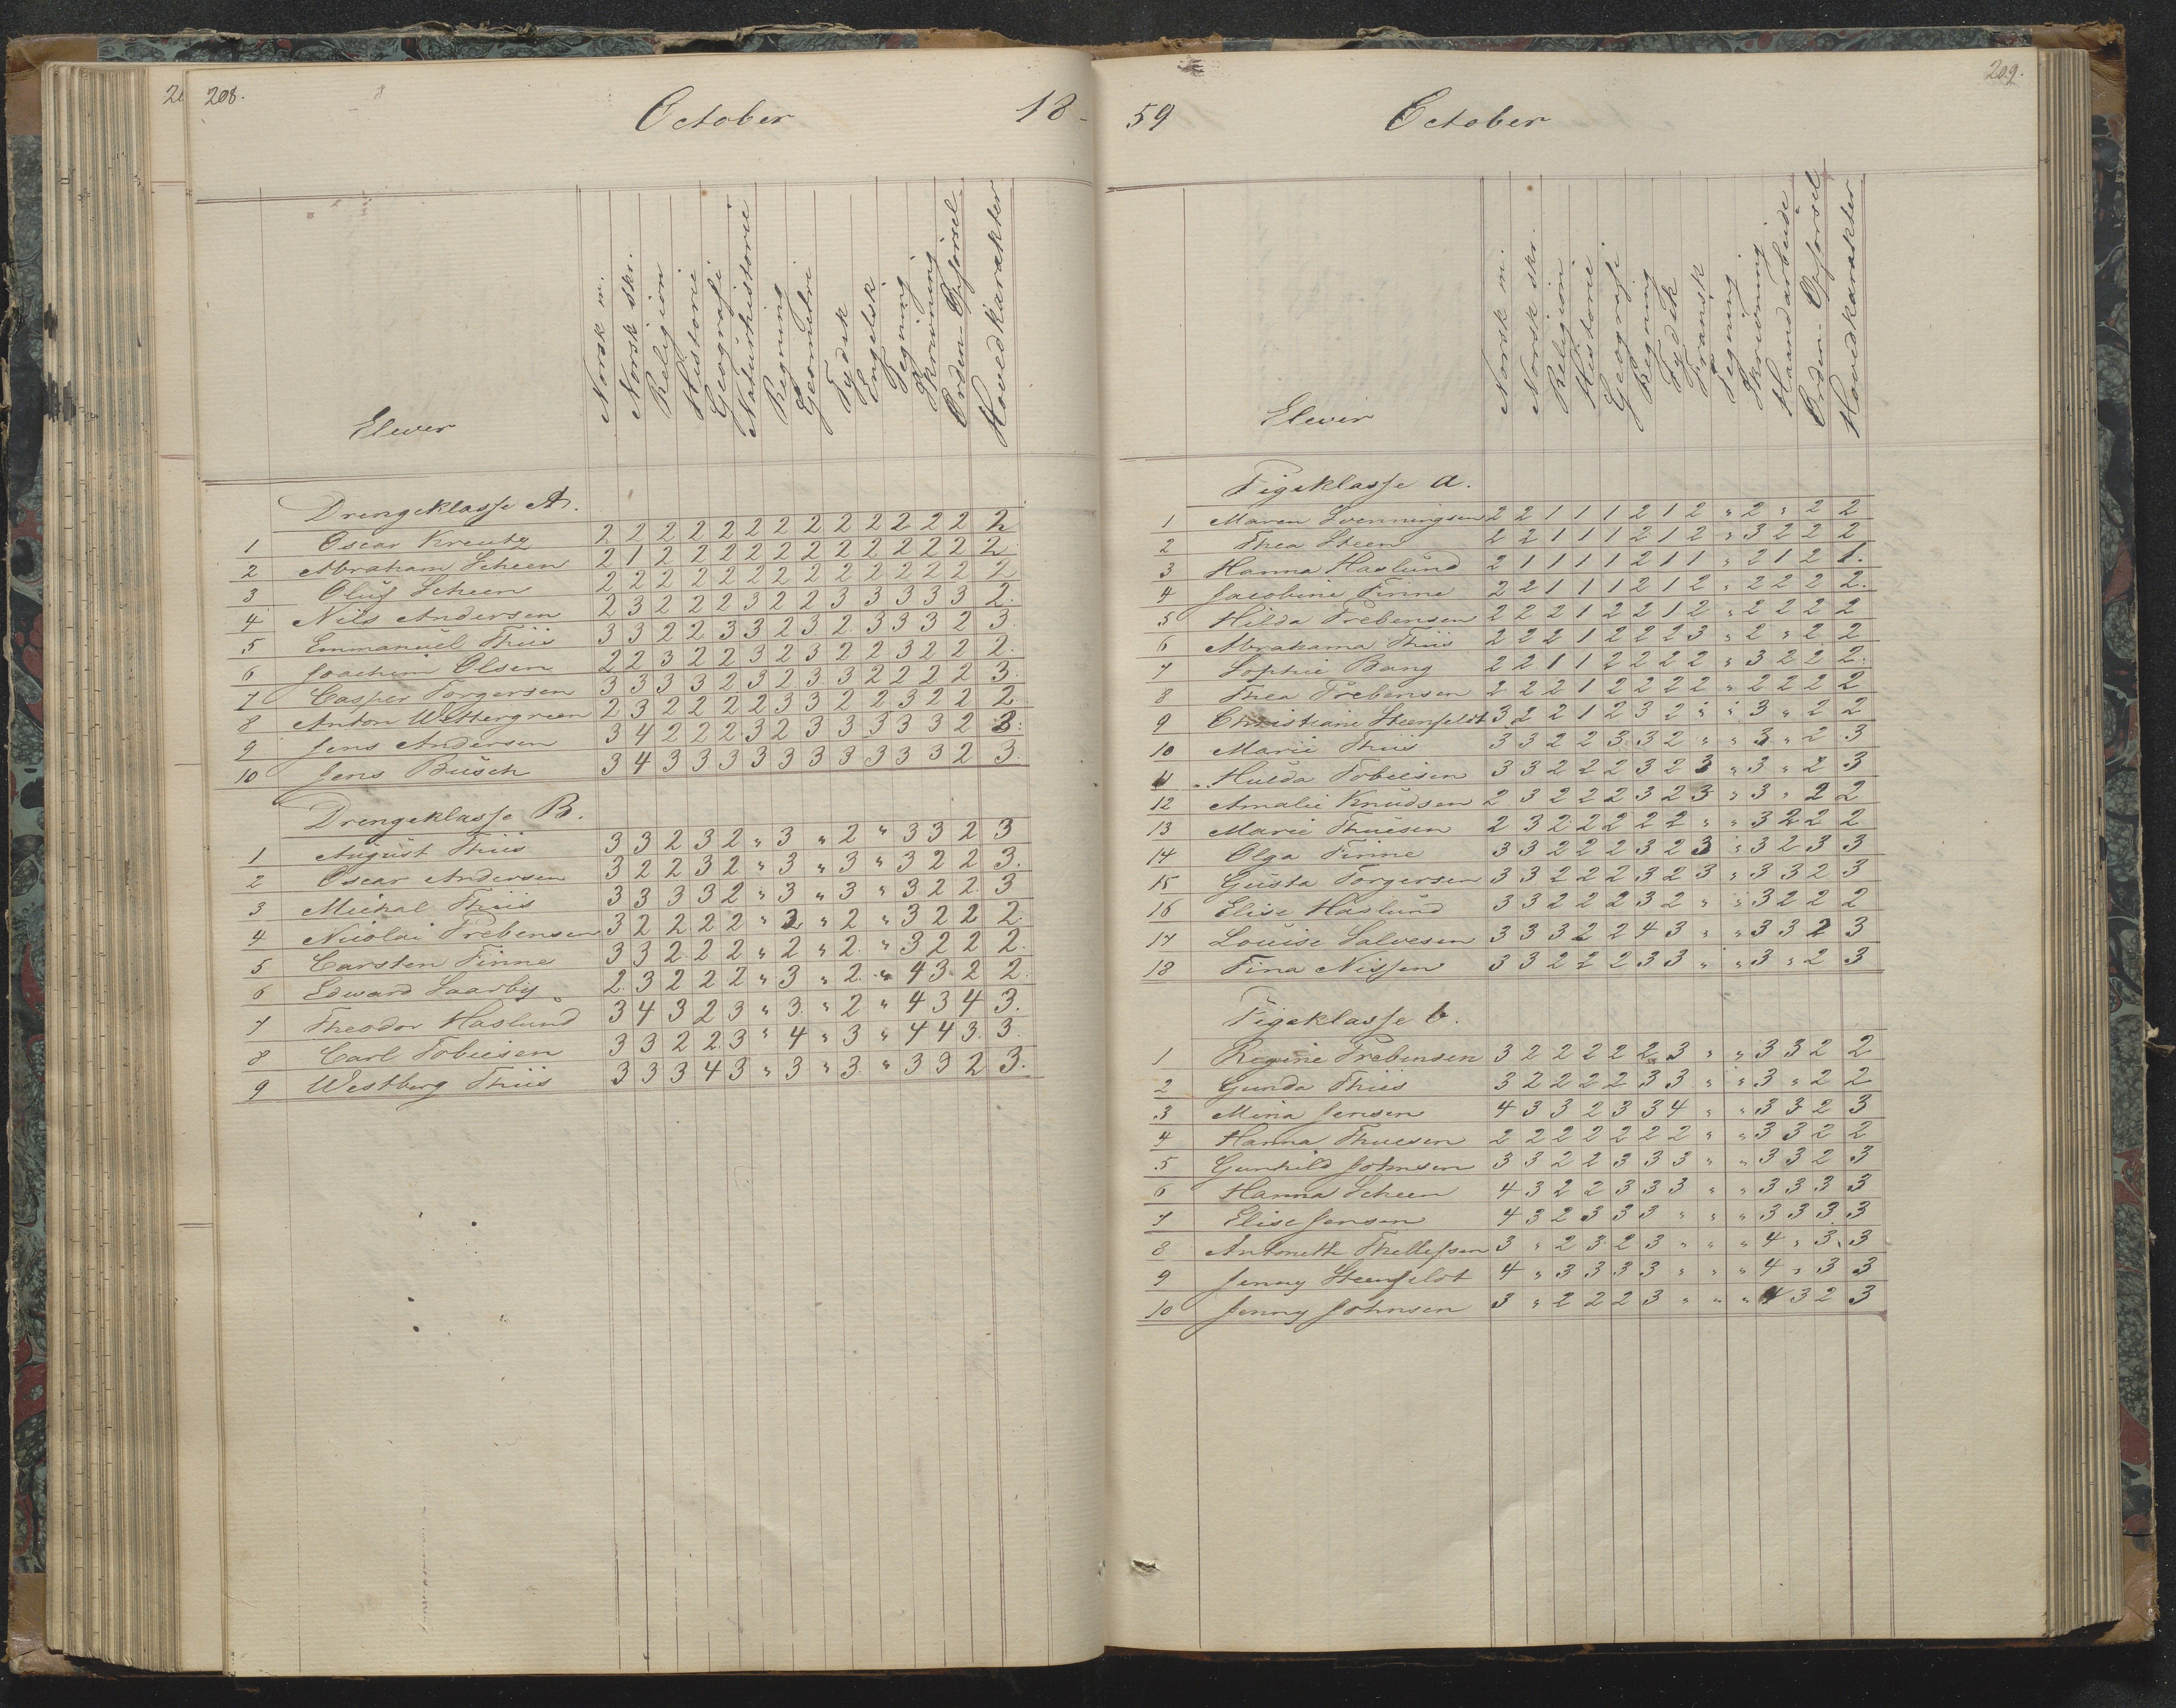 208.
October 18-
Norsk m.
Norsk skr.
Religion
Historie
Geografi
Naturhistorie
Regning
Geometri
Tydsk
Engelsk
Tegning
Skrivning
Orden-Opførsel
Hovedkarakter
Elever
Drengeklasse A.
1 Oscar Kreutz 2 2 2 2 2 2 2 2 2 2 2 2 2 2
2 Abraham Scheen 2 1 2 2 2 2 2 2 2 2 2 2 2 2
3 Oluf Scheen 2 2 2 2 2 2 2 2 2 2 2 2 2 2
4 Nils Andersen 2 3 2 2 2 3 2 2 3 3 3 3 3 2.
5 Emmanuel Thiis 3 3 2 2 3 3 2 3 2 3 3 3 2 3
6 Joachim Olsen 2 2 3 2 2 3 2 3 2 2 3 2 2 2.
7 Casper Torgersen 3 3 3 3 2 3 2 3 3 2 2 2 2 3
8 Anton Wettergreen 2 3 2 2 2 2 3 3 2 2 3 2 2 2
9 Jens Andersen 3 4 2 2 2 3 2 3 3 3 3 3 2 3.
10 Jens Busch 3 4 3 3 3 3 3 3 3 3 3 3 2 3.
Drengeklasse B.
1 August Thiis 3 3 2 3 2 " 3 " 2 " 3 3 2 3
2 Oscar Andersen 3 2 2 3 2 " 3 " 3 " 3 2 2 3.
3 Michal Thiis 3 3 3 3 2 " 3 " 3 " 3 2 2 3
4 Nicolai Prebensen 3 2 2 2 2 " 2 " 2 " 3 2 2 2.
5 Carsten Finne 3 3 2 2 2 " 2 " 2 " 3 2 2 2.
6 Edward Saarby 2 3 2 2 2 " 3 " 2 " 4 3 2 2
7 Theodor Haslund 3 4 3 2 3 " 3 " 2 " 4 3 4 3.
8 Carl Tobiesen 3 3 2 2 3 " 4 " 3 " 4 4 3 3.
9 Westberg Thiis 3 3 3 4 3 " 3 " 3 " 3 3 2 3.
59 October
209.
Norsk m.
Norsk skr.
Religion
Historie
Geografi
Regning
Tydsk
Fransk
Tegning
Skrivning
Haandarbeide
Orden-Opførsel
Hovedkarakter
Elever
Pigeklasse a.
1 Maren Svenningsen 2 2 1 1 1 2 1 2 " 2 " 2 2
2 Thea Steen 2 2 1 1 1 2 1 2 " 3 2 2 2
3 Hanna Haslund 2 1 1 1 1 2 1 1 " 2 1 2 1.
4 Jacobine Finne 2 2 1 1 1 2 1 2 " 2 2 2 2.
5 Hilda Prebensen 2 2 2 1 2 2 1 2 " 2 2 2 2
6 Abrahama Thiis 2 2 2 1 2 2 2 3 " 2 " 2 2
7 Sophie Bang 2 2 1 1 2 2 2 2 " 3 2 2 2.
8 Thea Prebensen 2 2 2 1 2 2 2 2 " 2 2 2 2
9 Christiane Steenfeldt 3 2 2 1 2 3 2 " " 3 " 2 2
10 Marie Thiis 3 3 2 2 3 3 2 " " 3 " 2 3
11 Hulda Tobiesen 3 3 2 2 2 3 2 3 " 3 " 2 3
12 Amalie Knudsen 2 3 2 2 2 3 2 3 " 3 " 2 2
13 Marie Thuesen 2 3 2 2 2 2 2 " " 3 2 2 2
14 Olga Finne 3 3 2 2 2 3 2 3 " 3 2 3 3
15 Gusta Torgersen 3 3 2 2 2 3 2 3 " 3 3 2 3
16 Elise Haslund 3 3 2 2 2 3 2 " " 3 2 2 2
17 Louise Salvesen 3 3 3 2 2 4 3 " " 3 3 2 3
18 Tina Nissen 3 3 2 2 2 3 3 " " 3 " 2 3
Pigeklasse b.
1 Regine Prebensen 3 2 2 2 2 2 3 " " 3 3 2 2
2 Gunda Thiis 3 2 2 2 2 3 3 " " 3 " 2 2
3 Mina Jensen 4 3 3 2 3 3 4 " " 3 3 2 3
4 Hanna Thuesen 2 2 2 2 2 2 2 " " 3 3 2 2
5 Gunhild Johnsen 3 3 2 2 3 3 3 " " 3 3 2 3
6 Hanna Scheen 4 3 2 2 3 3 3 " " 3 3 3 3
7 Elise Jensen 4 3 2 3 3 3 " " " 3 3 3 3
8 Antonette Thellefsen 3 " 2 3 2 3 " " " 4 " 3 3
9 Jenny Steenfeldt 4 " 3 3 3 3 " " " 4 " 3 3
10 Jenny Johnsen 3 " 2 2 2 3 " " " 4 3 2 3